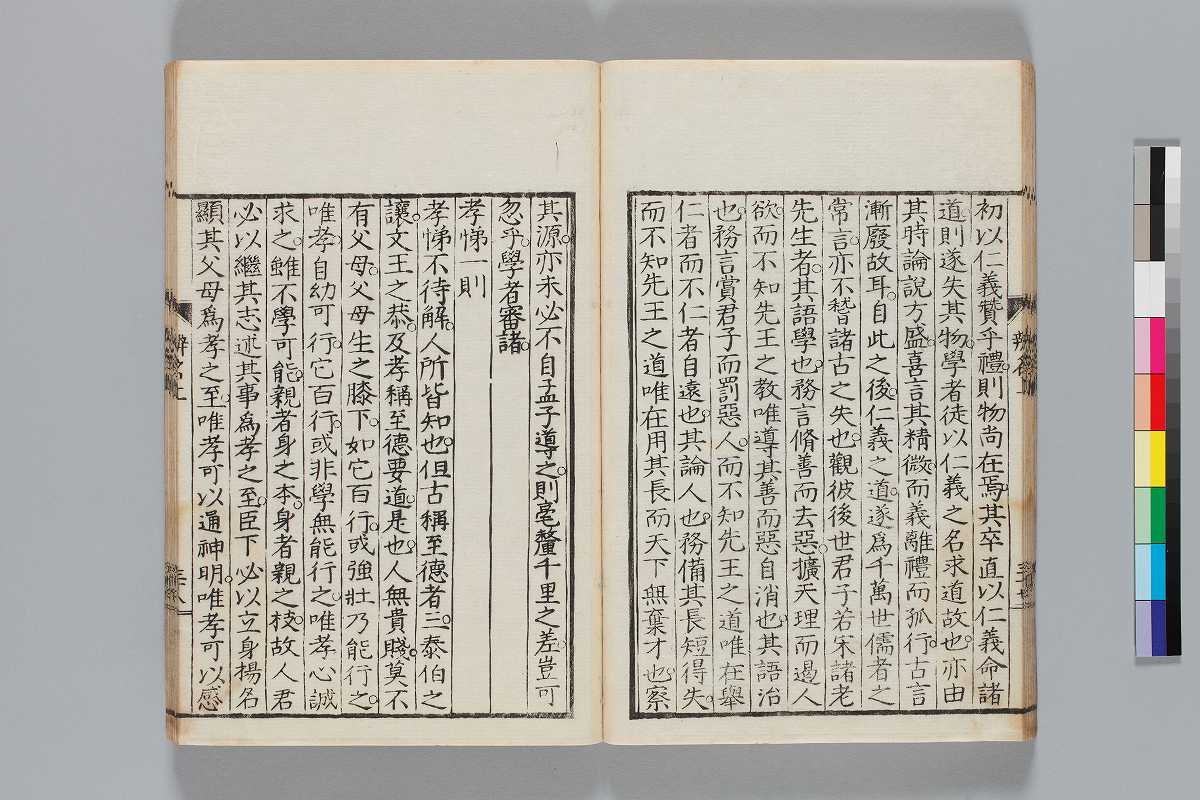 初以仁義贊乎禮。則物尚在焉。其卒直以仁義命諸
道。則遂失其物。學者徒以仁義之名求道故也。亦由
其時論說方盛。喜言其精微。而義離禮而孤行。古言
漸廢故耳。自此之後。仁義之道。遂爲千萬世儒者之
常言。亦不稽諸古之失也。觀彼後世君子若宋諸老
先生者。其語學也。務言脩善而去惡。擴天理而遏人
欲。而不知先王之教唯導其善而惡自消也。其語治
也。務言賞君子而罰惡人。而不知先王之道唯在舉
仁者而不仁者自遠也。其論人也。務備其長短得失。
而不知先王之道唯在用其長而天下無棄才也。察
其源。亦未必不自孟子導之。則毫釐千里之差。豈可
忽乎。學者審諸。
孝悌一則
孝悌不待解。人所皆知也。但古稱至德者三。泰伯之
讓。文王之恭。及孝稱至德要道。是也。人無貴賤。莫不
有父母。父母生之膝下。如它百行。或強壯乃能行之。
唯孝自幼可行。它百行。或非學無能行之。唯孝心誠
求之。雖不學可能。親者身之本。身者親之枝。故人君
必以繼其志述其事爲孝之至。臣下必以立身揚名
顯其父母爲孝之至。唯孝可以通神明。唯孝可以感
辨名上
辨名上